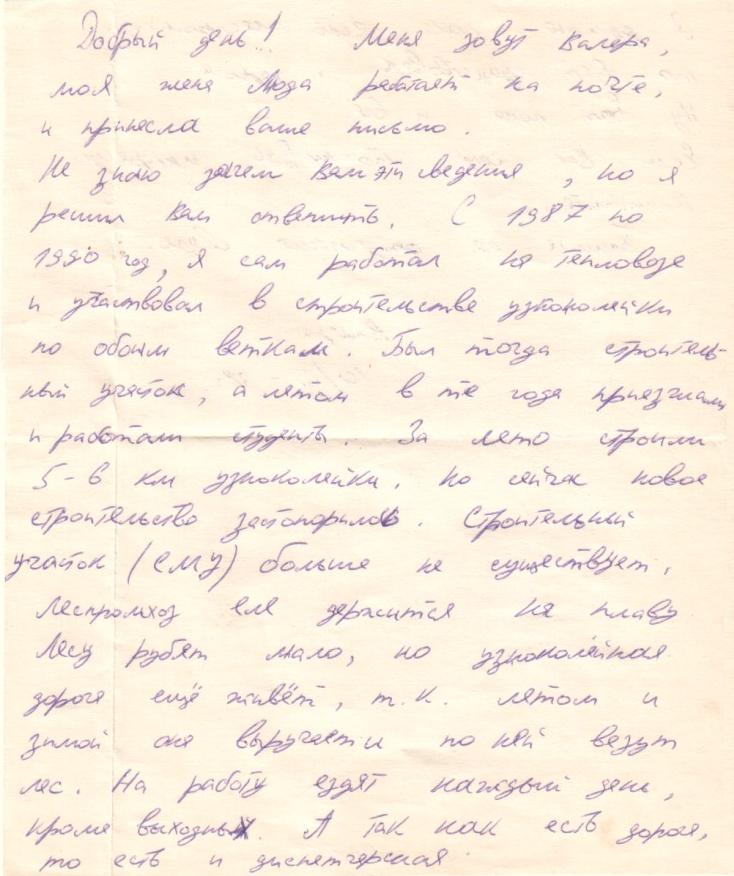 Добрый день! Меня зовут Валера,
моя жена Люда работает на почте,
и принесла ваше письмо.
Не знаю зачем Вам эти ведения, но я
решил Вам ответить. С 1987 по
1990 год, я сам работал на тепловозе
и участвовал в строительстве узкоколейки
по обоим веткам. Был тогда строитель-
ный участок, а летом в те года приезжали
и работали студенты. За лето строили
5-6 км узкоколейки. Но сейчас новое
строительство застопорилось. Строительный
участок (СМУ) больше не существует,
Леспромхоз еле держится на плаву
Лесу рубят мало, но узкоколейная
дорога ещё живёт, т.к. летом и
зимой она выручает и по ней везут
лес. На работу ездят каждый день,
кроме выходных. А так как есть дорога,
то есть и диспетчерская.